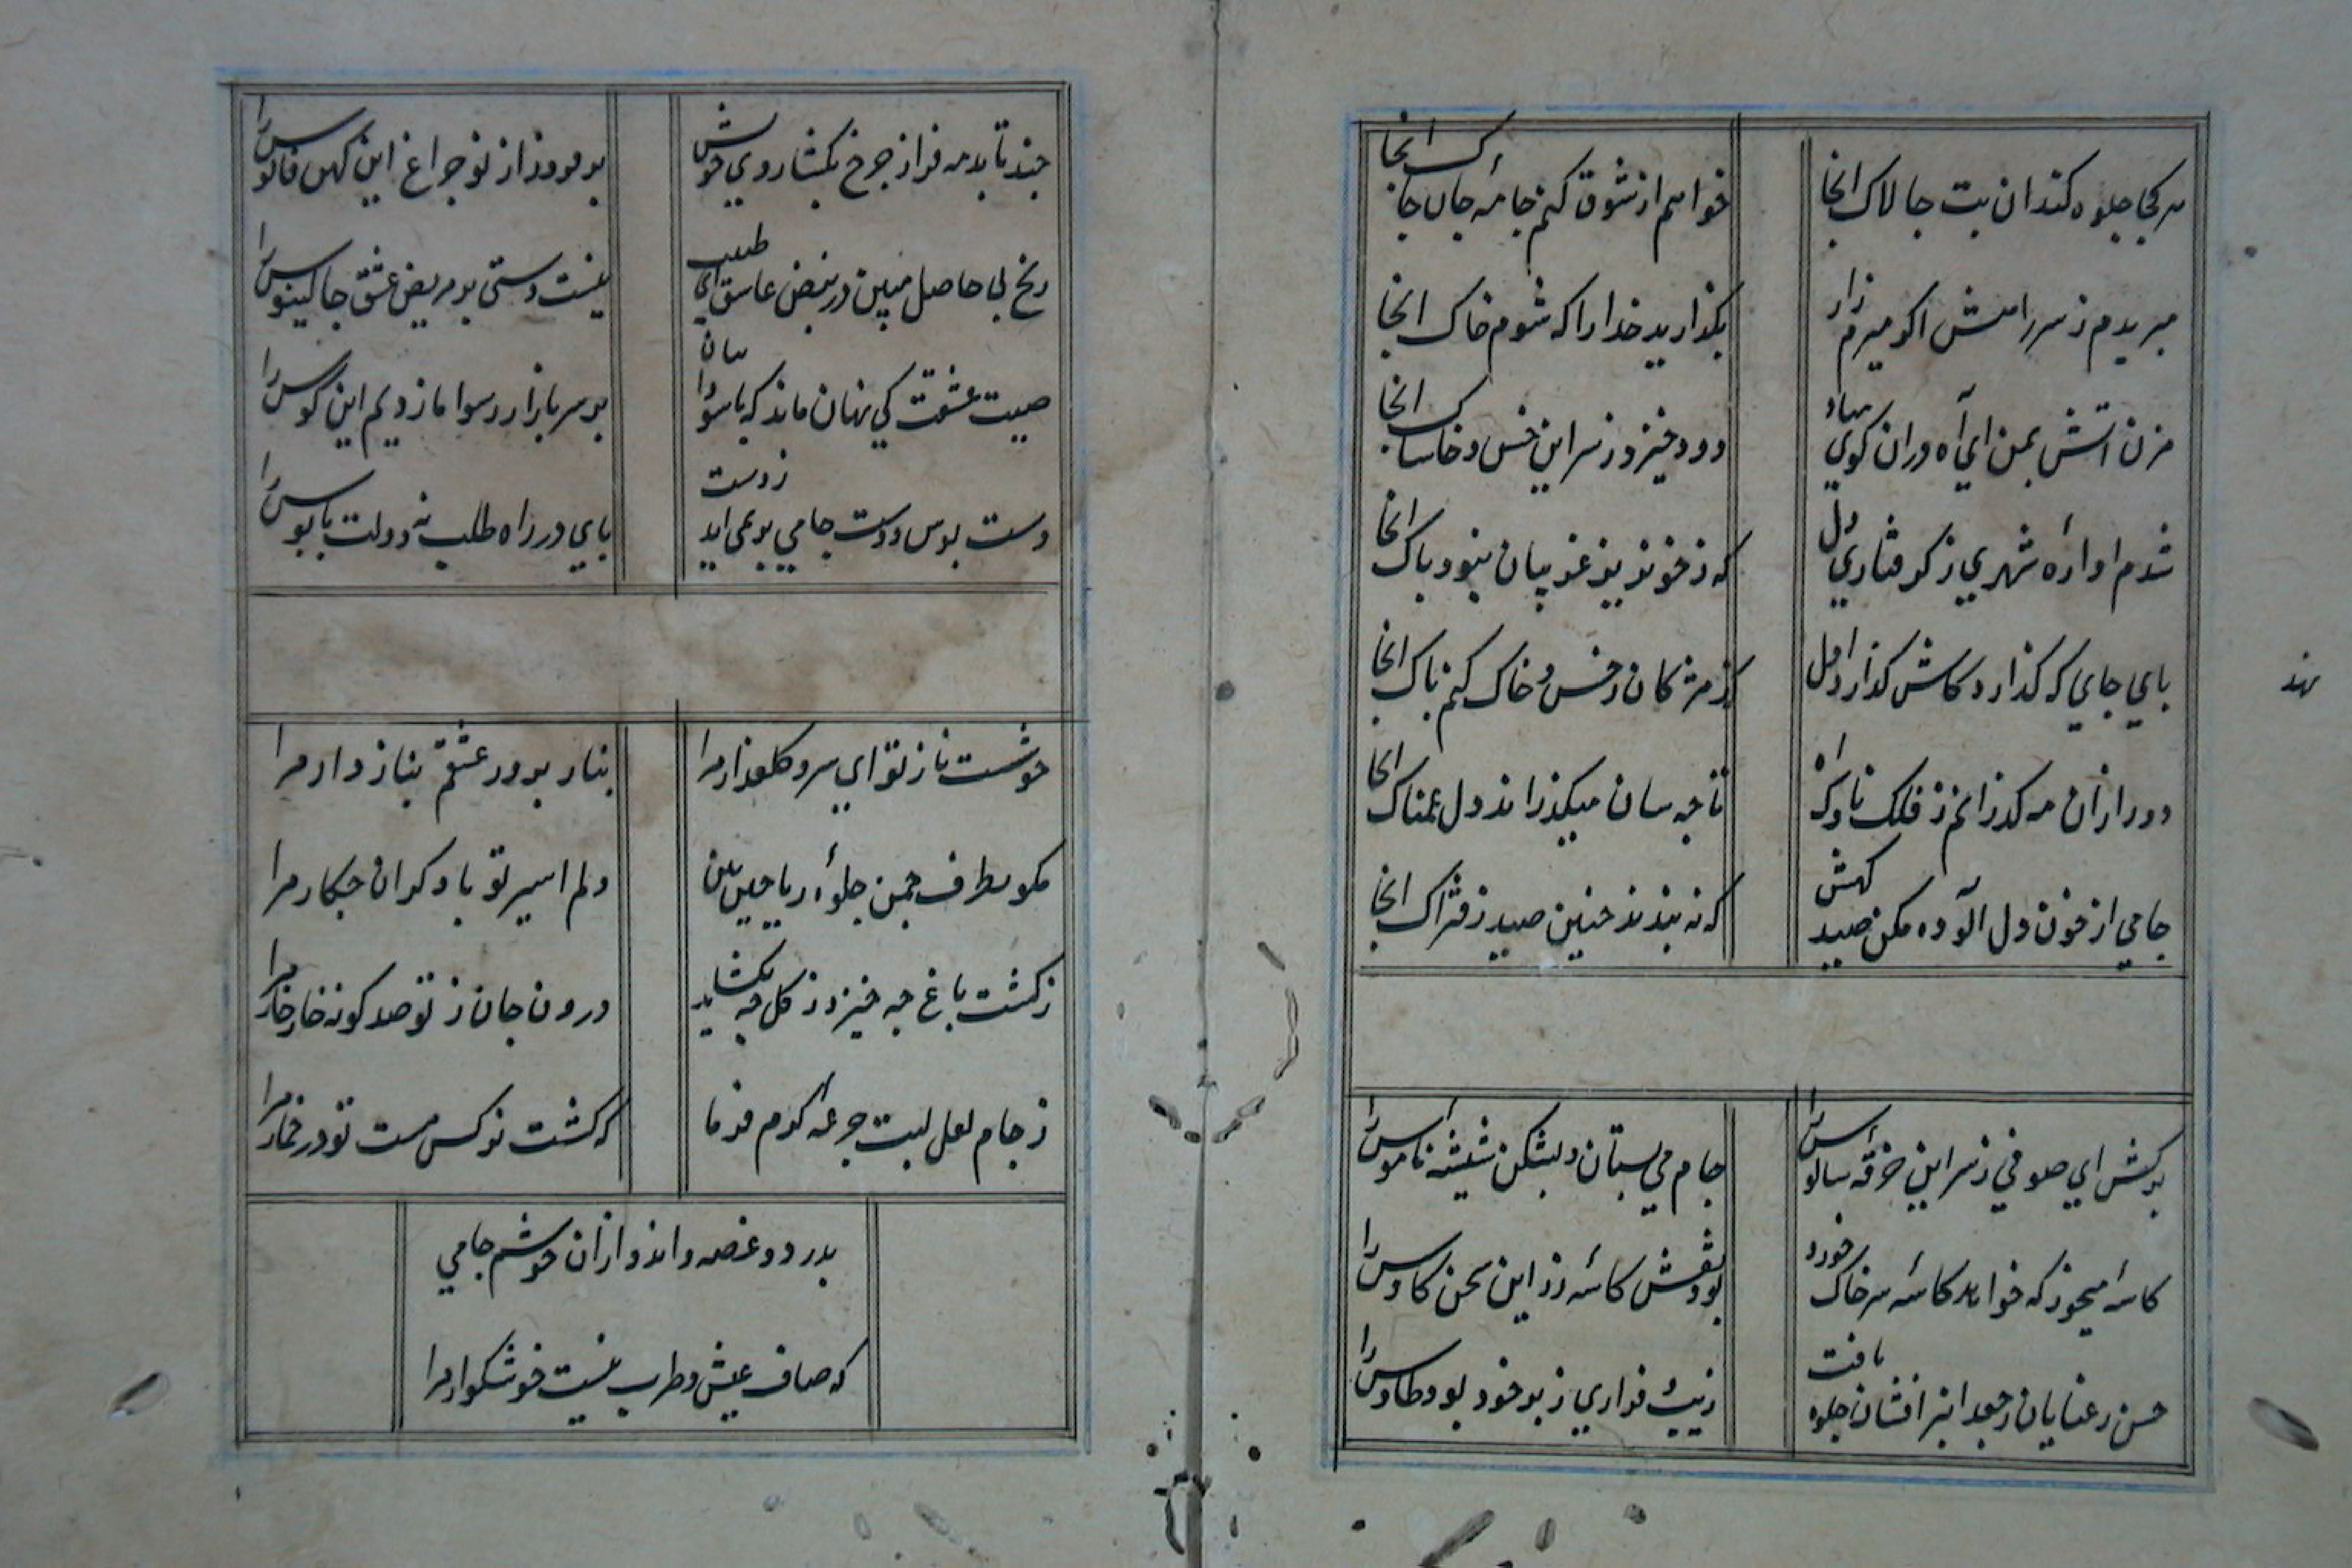 هر کجا جلوه کند ان بت چالاک انجا
خواهم از شوق کنم جامه جان چاک انجا
مبریدم ز سر راهش اکر میرم زار
بکذارید خدا را که شوم خاک انجا
مزن اتش بمن ای آه در ان کوی مباد
دود خیزد ز سر این خس و خاشاک انجا
شدم اواره شهری ز کرفتاری دل
که ز خونریز غریبان نبود باک انجا
بای جایی که کذارد کاش کذارد اول
کز مژکان ز خس و خاک کنم باک انجا
دور ازان مه کذرانم ز فلک ناوک اه
تا چه سان میکذراند دل غمناک انجا
جامی از خون دل آلوده مکن صید کهش
که نه بندند چنین صید ز فتراک انجا
نهد
برکش ای صوفی ز سر این خرقه سالوس را
جام می بستان و بشکن شیشه ناموس را
کاسه میخور که خواهد کاسه سر خاک خورد
بود نقش کاسه زر این سخن کاوس را
حسن رعنایان ز جعد عنبر افشان جلوه یافت
زیب فرداری ز بر خود بود طاوس را
چند تابد مه فراز چرخ بکشا روی خویش
بر فروز از نو چراغ این کهن فانوس را
رنج بی حاصل مبین در نبض عاشق ای طبیب
نیست دستی بر مریض عشق جالینوس را
صیت عشقت کی نهان ماند که با سودا سان
بر سر بازار رسوا ما زدیم این کوس را
دست بوس دوست جامی بر نمی اید ز دست
بای در راه طلب نه دولت بابوس را
خوشست ناز تو ای سرو کلعذار مرا
بناز برور عشقم بناز دار مرا
مکو بطرف چمن جلوه ریاحین بین
دلم اسیر تو با دکران چکار مرا
ز کشت باغ چه خیزد ز کل چه بکشاید
درون جان ز تو صد کونه خار خار مرا
ز جام لعل لبت جرعه کرم فرما
که کشت نرکس مست تو در خمار مرا
بدرد و غصه و اندوه ازان خوشم جامی
که صاف عیش و طرب نیست خوشکوار مرا